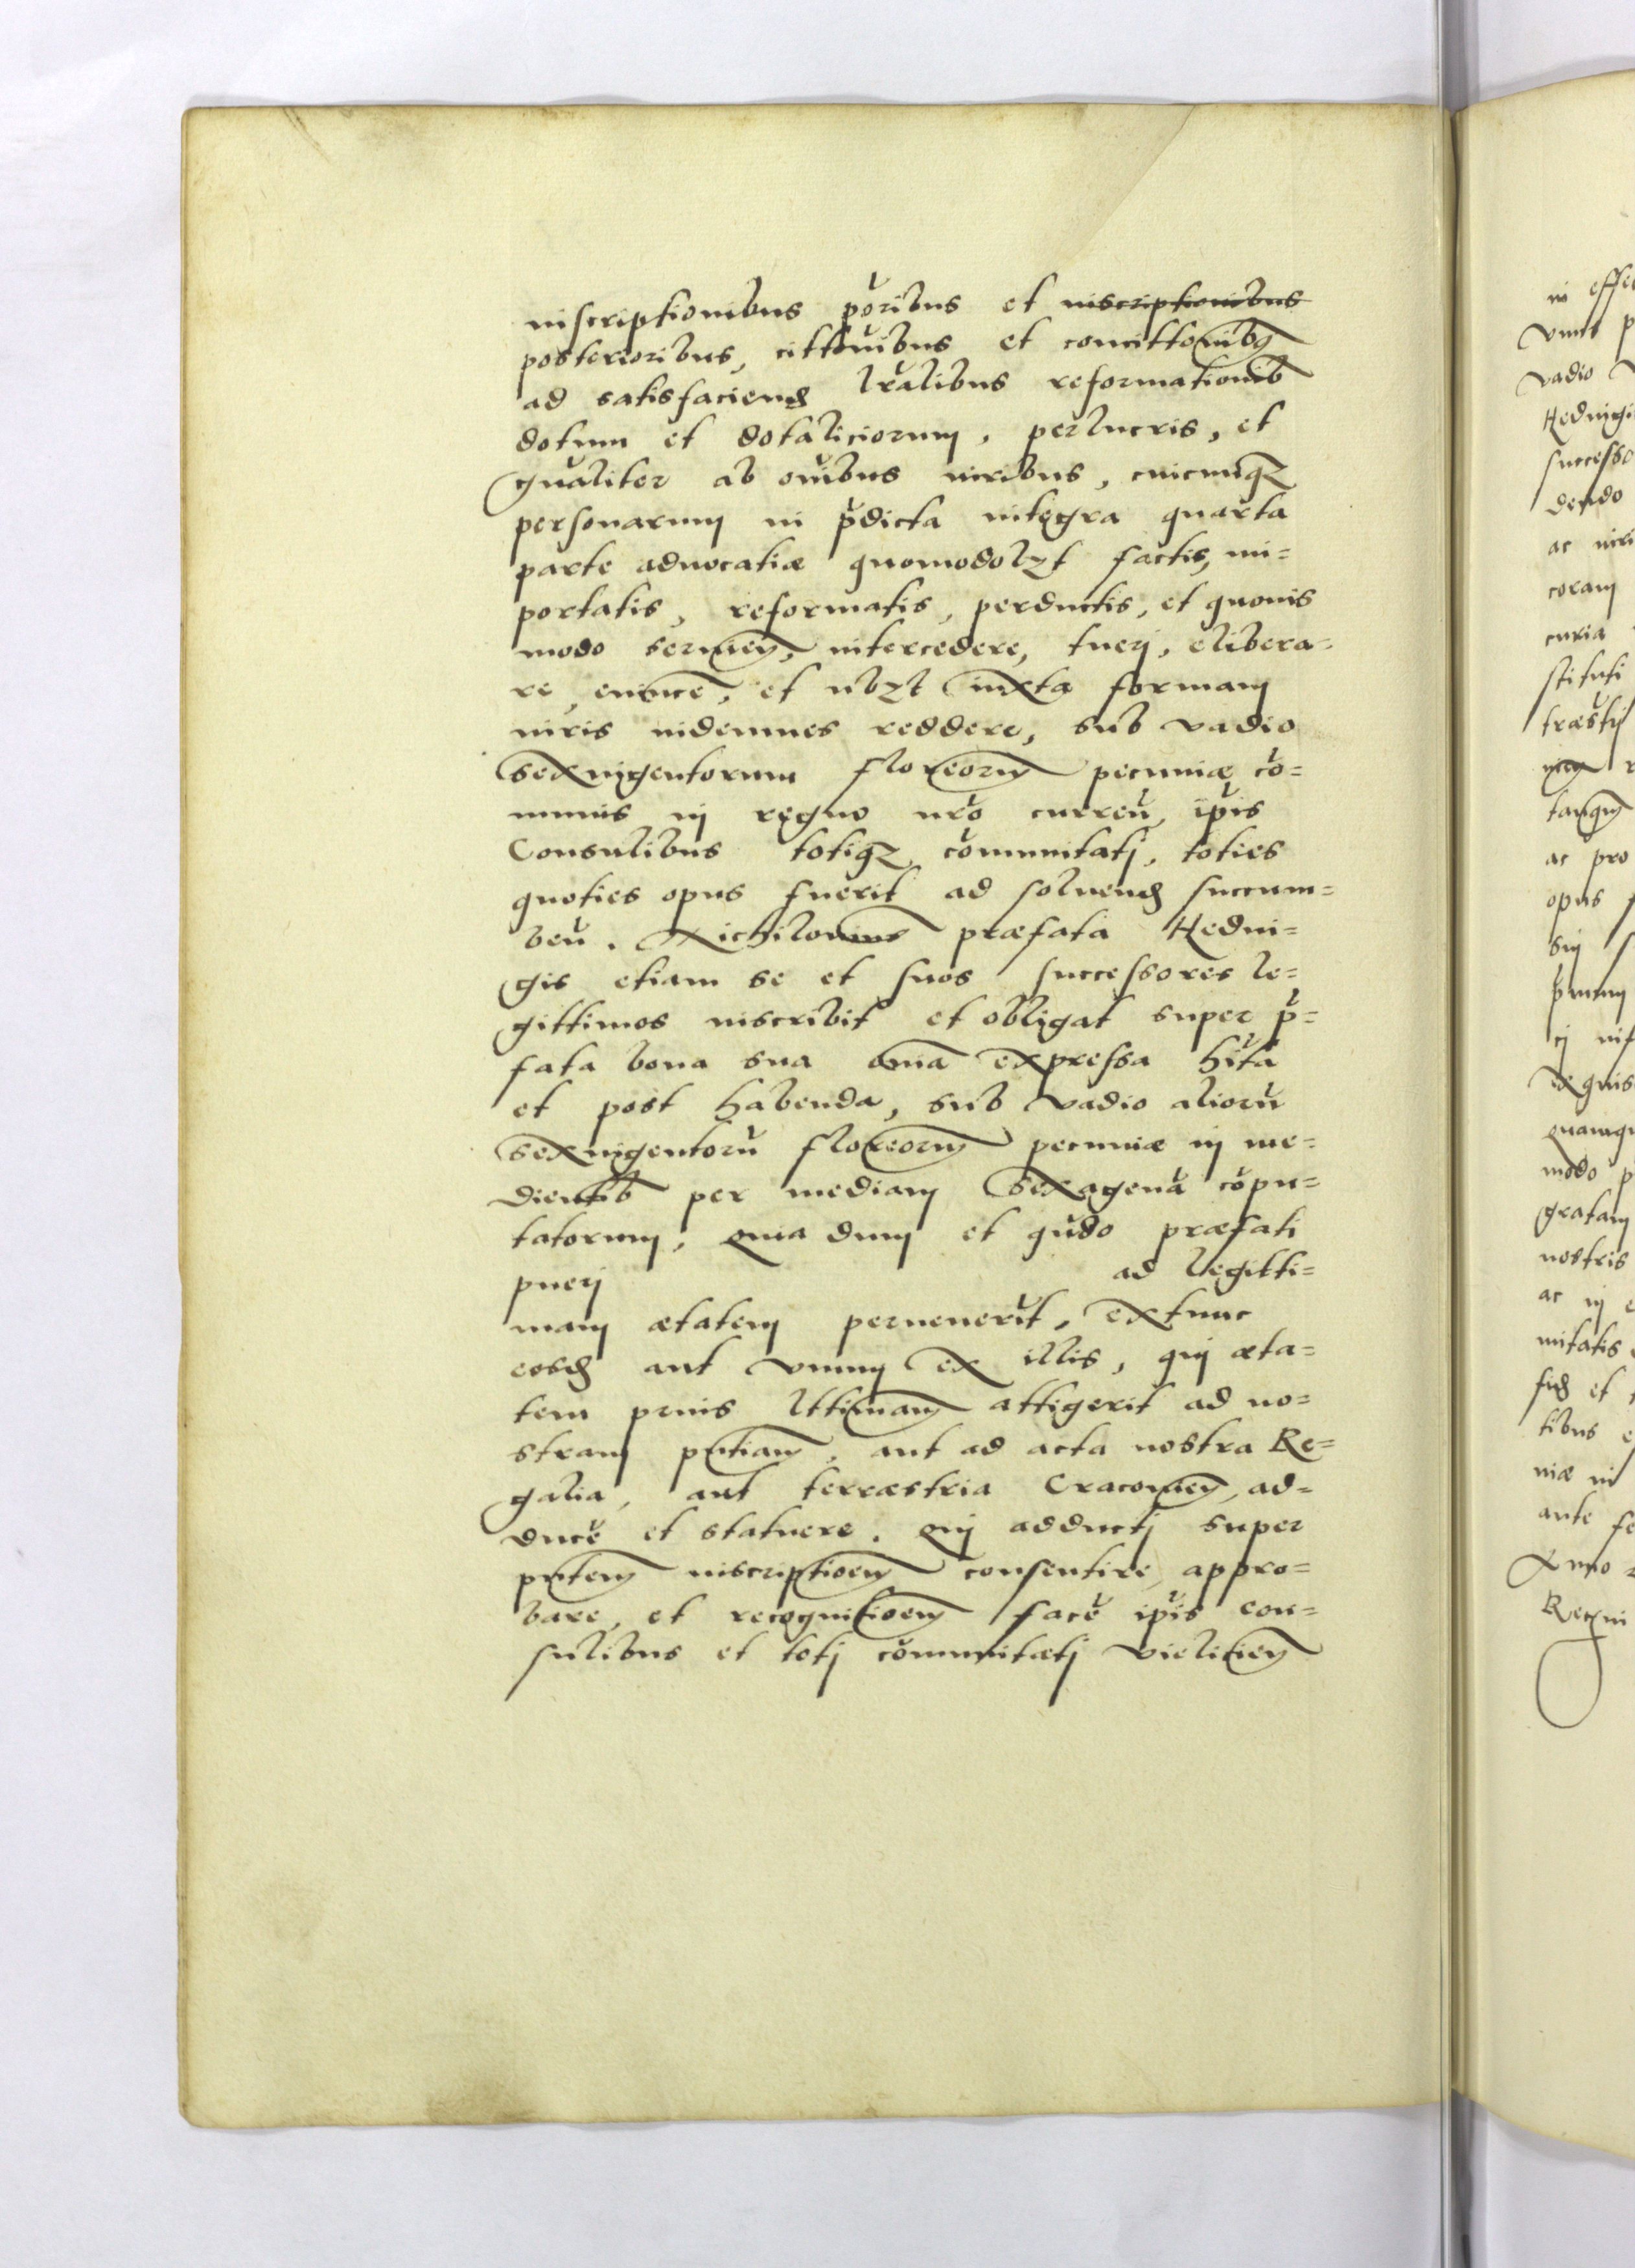 inscriptionibus p̆oribus et inscriptionibus
posterioribus, cittŏnibus et concittonibq
ad satisfaciend lr̆alibus reformationib
dotum et dotaliciorum, perlucris, et
qualiter ab omĭbus iuribus, cuicumqz
personarum in p̆dicta integra quarta
parte aduocatiæ quomodolzt factis, im=
portatis, reformatis, perductis, et quouis
modo seruien, intercedere, tuerj, elibera=
re, euince, et ubzt iuxta formam
iuris indemnes reddere, sub vadio
sexuigentorum floreorum pecuniæ cŏ=
munis in regno nr̆o curren̆, ip̆is
Consulibus totiqz cŏmunitatj, toties
quoties opus fuerit ad soluend succum=
ben̆. præfata Hedui=
gis etiam se et suos successores le=
gittimos inscribit et obligat super p̆=
fata bona sua om̄ia expressa hit̆a
et post habenda, sub vadio aliorŭ
sexuigentorŭ floreorum pecuniæ in me=
dientib per mediam sexagenă cŏpu=
tatorum, quia dum et qŭdo præfati
puerj ad legitti=
mam ætatem peruenerit̆, extunc
eosd aut vnum ex illis, qui æta=
tem prius lttimam attigerit ad no=
stram pntiam, aut ad acta nostra Re=
galia, aut terræstria Cracouien, ad=
ducĕ et statuere. qui adductj super
pntem inscriptioem consentire, appro=
bare, et recognitioem facĕ ip̆is con=
sulibus et totj cŏmunitatj vielicien
in effe
vnus p
vadio
Heduigi
successo
dendo
ac iuri
coram
curia
stituti
træstri
tanqm
ac pro
opus
sui
in
quis
quamqu
modo p
gratam
nostris
ac in
nitatis
fid et
tibus
niæ in
ante fe
Anno